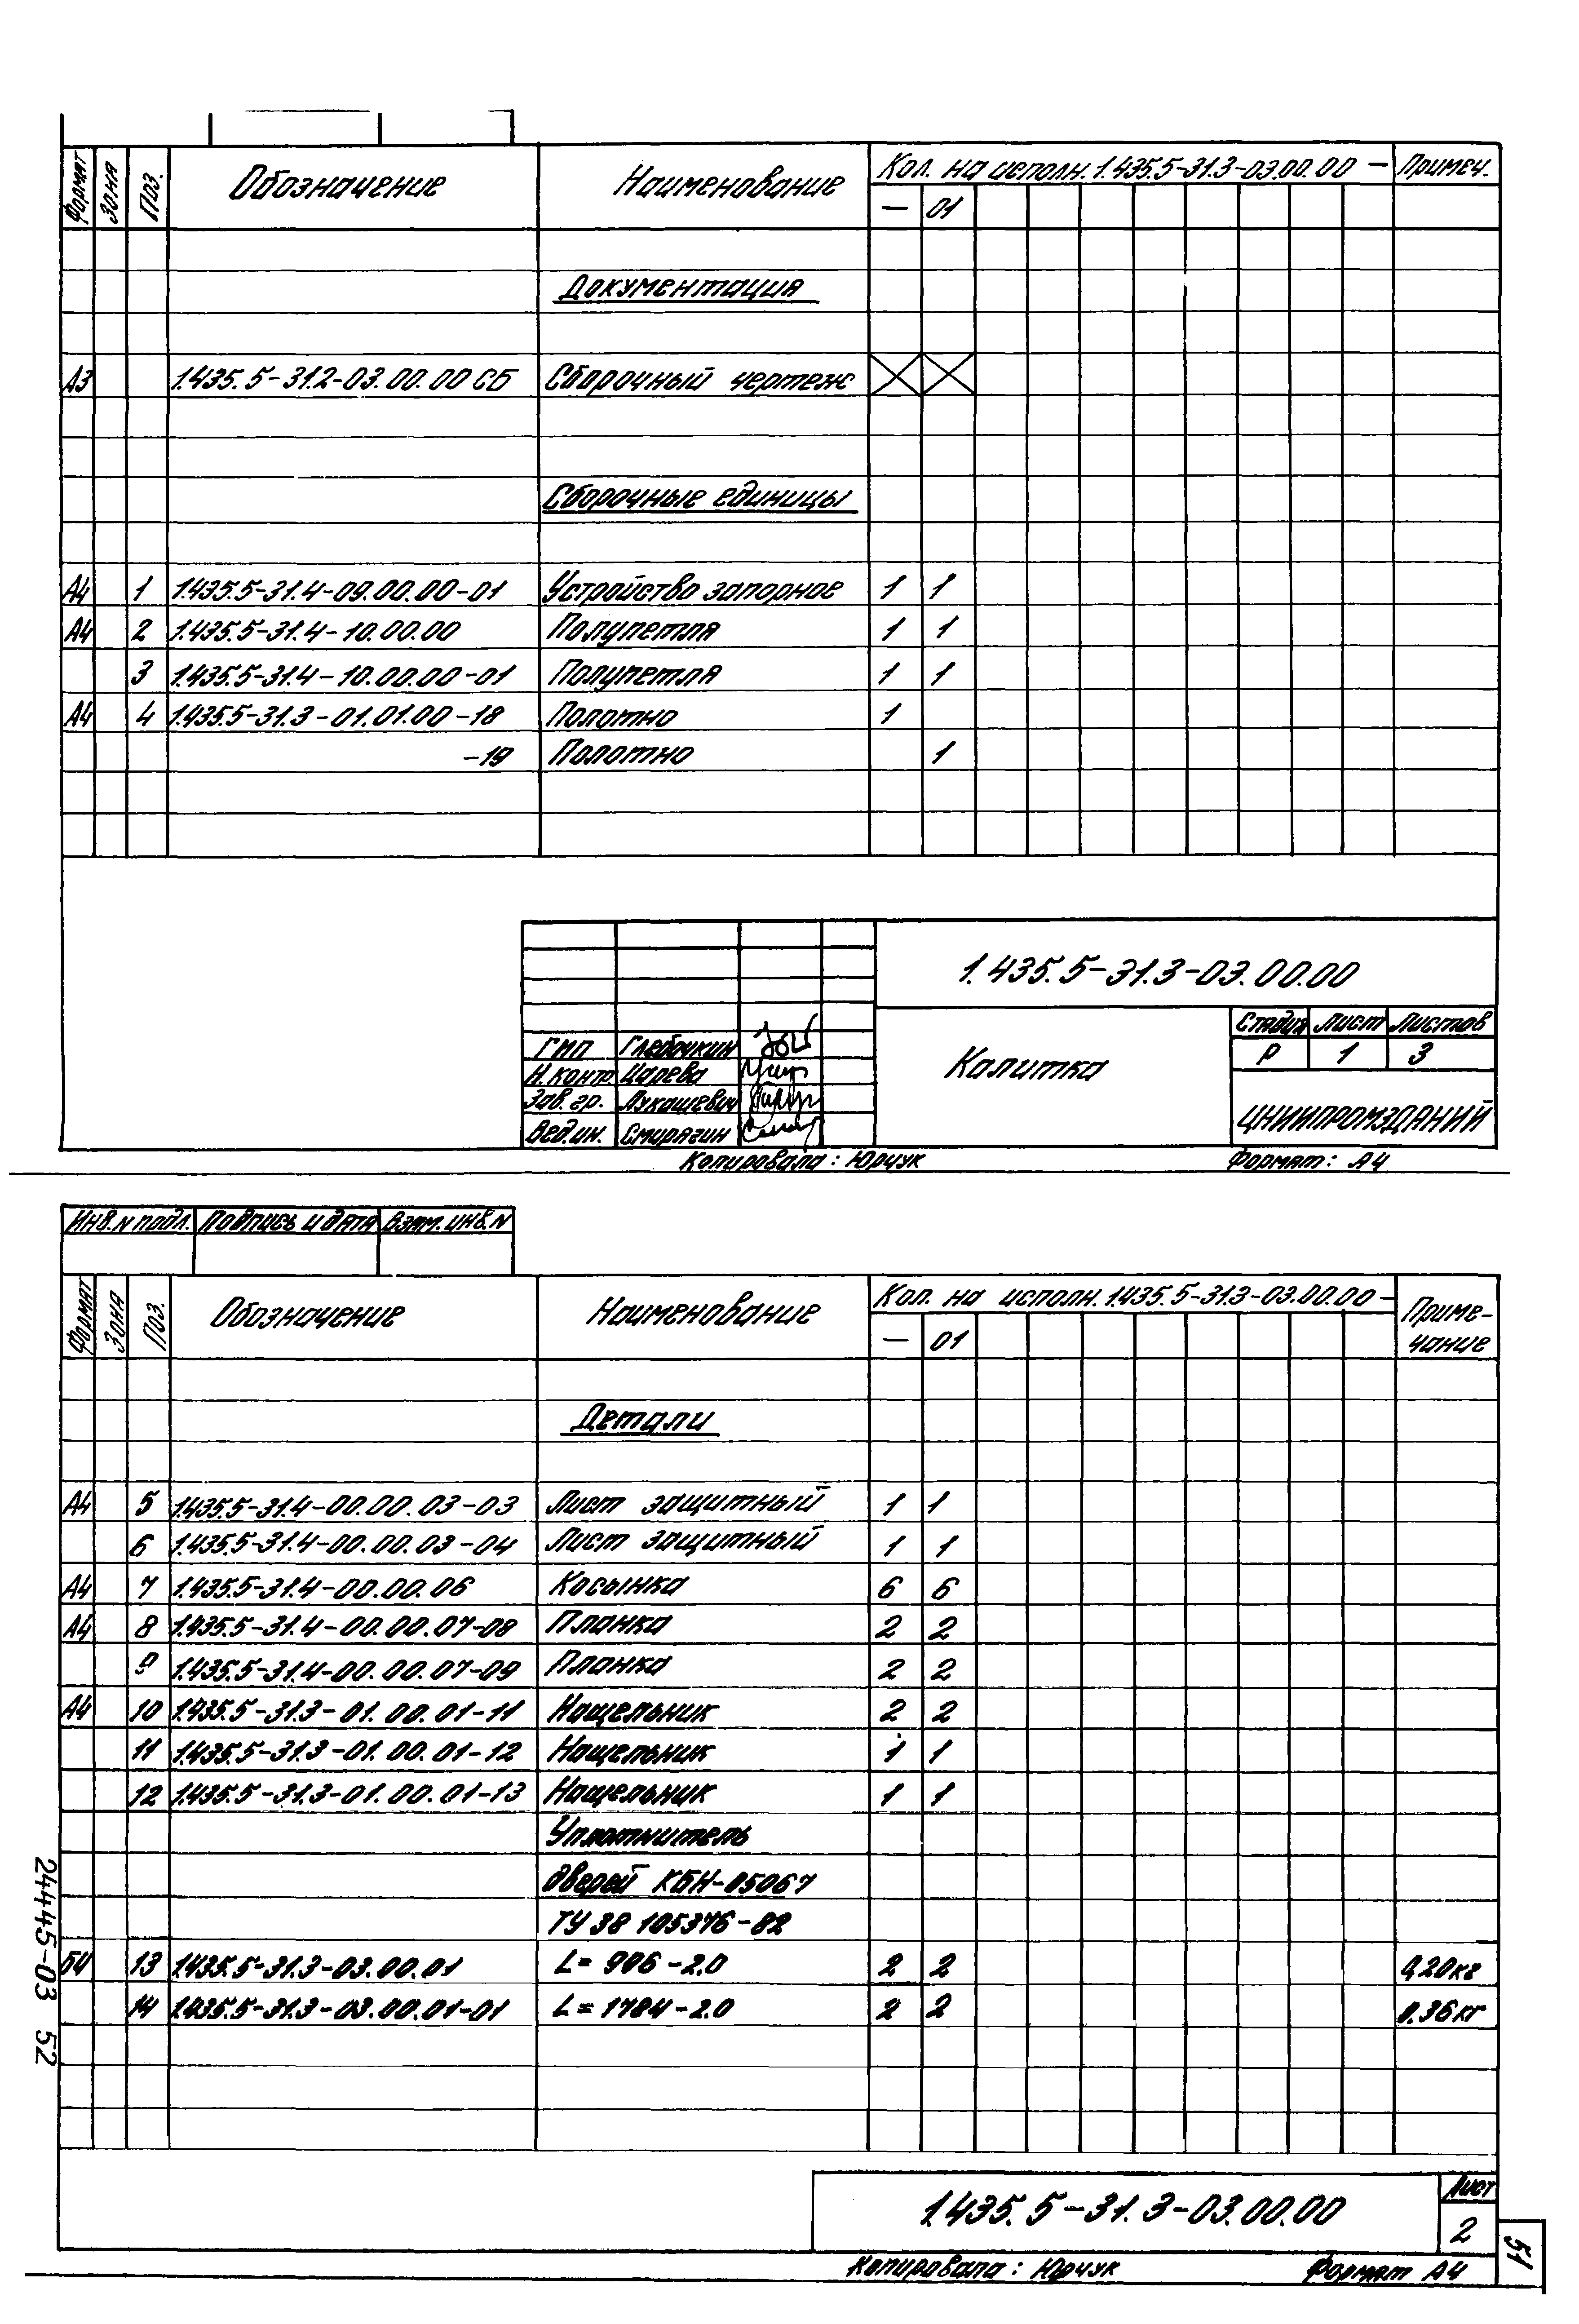 Формат Зона Поз. Обозначение Наименование Кол. на исполн. 1.435.5-31.3-03.00.00 - Примеч.
- 01
Документация
А3 1.435.5-31.2-03.00.00 СБ Сборочный чертеж
Сборочные единицы
А4 1 1.435.5-31.4-09.00.00-01 Устройство запорное 1 1
А4 2 1.435.5-31.4-10.00.00 Полупетля 1 1
3 1.435.5-31.4-10.00.00-01 Полупетля 1 1
А4 4 1.435.5-31.3-01.01.00-18 Полотно 1
-19 Полотно 1
1.435.5-31.3-03.00.00
Стадия Лист Листов
ГИП Глебочкин Калитка Р 1 3
Н. контр Царева
Зав. гр. Лукашевич
Вед. ин. Смирягин ЦНИИПРОМЗДАНИЙ
Копировала: Юрчук Формат: А4
Инв. N подл. Подпись и дата Взам. инв. N
Формат Зона Поз. Обозначение Наименование Кол. на исполн. 1.435.5-31.3-03.00.00 - Приме-
чание
- 01
Детали
А4 5 1.435.5-31.4-00.00.03-03 Лист защитный 1 1
6 1.435.5-31.4-00.00.03-04 Лист защитный 1 1
А4 7 1.435.5-31.4-00.00.06 Косынка 6 6
А4 8 1.435.5-31.4-00.00.07-08 Планка 2 2
9 1.435.5-31.4-00.00.07-09 Планка 2 2
А4 10 1.435.5-31.3-01.00.01-11 Нащельник 2 2
11 1.435.5-31.3-01.00.01-12 Нащельник 1 1
12 1.435.5-31.3-01.00.01-13 Нащельник 1 1
Уплотнитель
дверей КБН-05067
ТУ 38 105376-82
БЧ 13 1.435.5-31.3-03.00.01 L= 906-2.0 2 2 0,20кг
14 1.435.5-31.3-03.00.01-01 L= 1784-2.0 2 2 0.36кг
1.435.5-31.3-03.00.00 Лист
2
Копировала: Юрчук Формат А4
24445-03 52
51